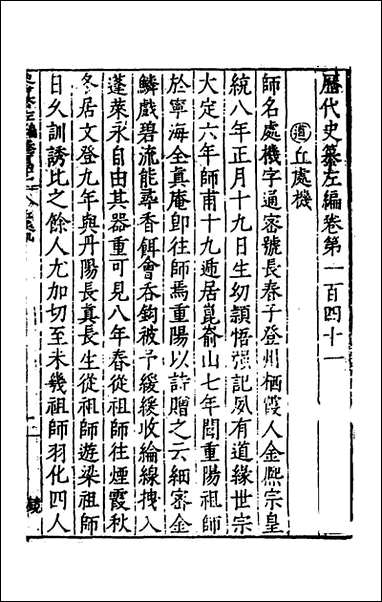 歷代史纂左編卷第一百四十一
道 丘處機
師名處機字通密號長春子登州栖霞人金熈宗皇
統八年正月十九日生幼頴悟强記夙有道緣世宗
大定六年師甫十九遁居崑崳山七年聞重陽祖師
於寧海全真庵卽往師焉重陽以詩贈之云細密金
鱗戲碧流能尋香餌會吞鈎被予緩緩收綸線拽入
蓬萊永自由其器重可見八年春從祖師往煙霞秋
冬居文登九年與丹陽長真長生從祖師遊梁祖師
日久訓誘比之餘人尤加切至未幾祖師羽化四人